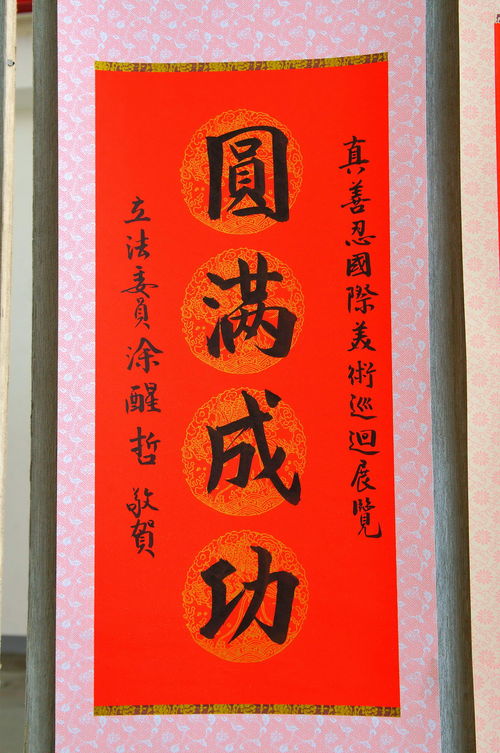 真善忍國際美術巡迴展覽
圓滿成功
立法委員涂醒哲 敬賀